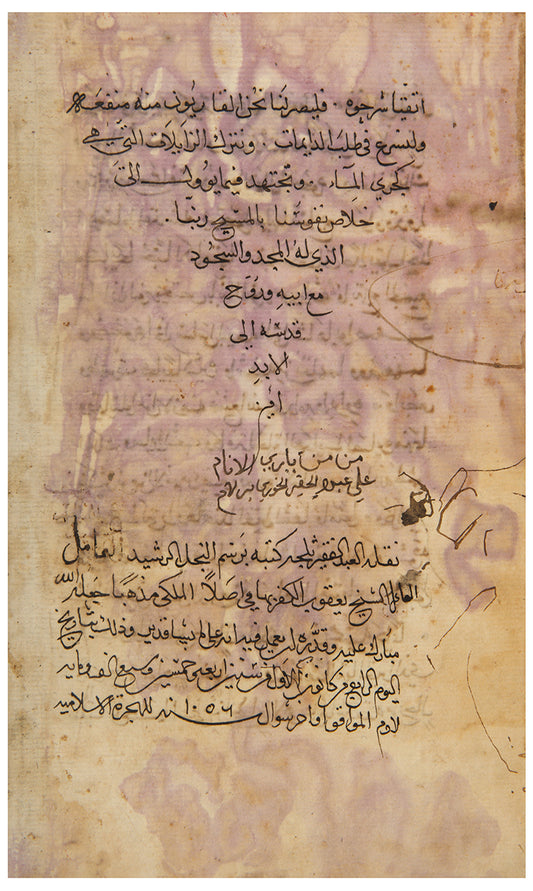 اتقنا شرحوه . فليصر لنا نحن القاريون منه منفعه
ولنسرع في طلب الدايمات . ونترك الزايلات التي هي
كجري الماء . ونجتهد فيما يوول الى
خلاص نفوسنا بالمسيح ربنا .
الذي له المجد والسجود
مع ابيه وروح
قدسه الى
الابد
امين
من من باري الانام
على عبده الحقير الخوري
نقله العبد الحقير كتبه برسم النجل الرشيد العامل
الفاضل الشيخ يعقوب اصلاً الملكي مذهبًا جعله الله
مبارك عليه وقدره ليعمل فيه انه على ما يشا قدير وذلك بتاريخ
اليوم الرابع من كانون الاول سنة اربعة خمسين وسبع الف ومايه
لادم الموافق اواخر شوال سنة ١٠٥٦ للهجرة الاسلاميه